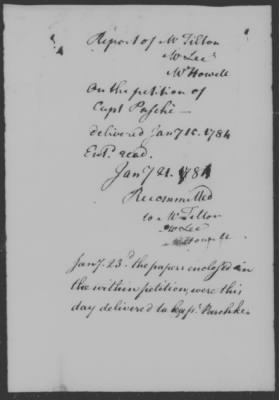 Report of Mr Tilton
Mr Lee
Mr Howell
On the petition of
Capt Paschè —
delivered Jany 15. 1784
Entd. read.
Jany 21. 1784
Recommitted
to Mr Tilton
Mr Lee
Mr Howell
Jany. 23d. the papers enclosed in
the within petition, were this
day delivered to Capt. Paschke